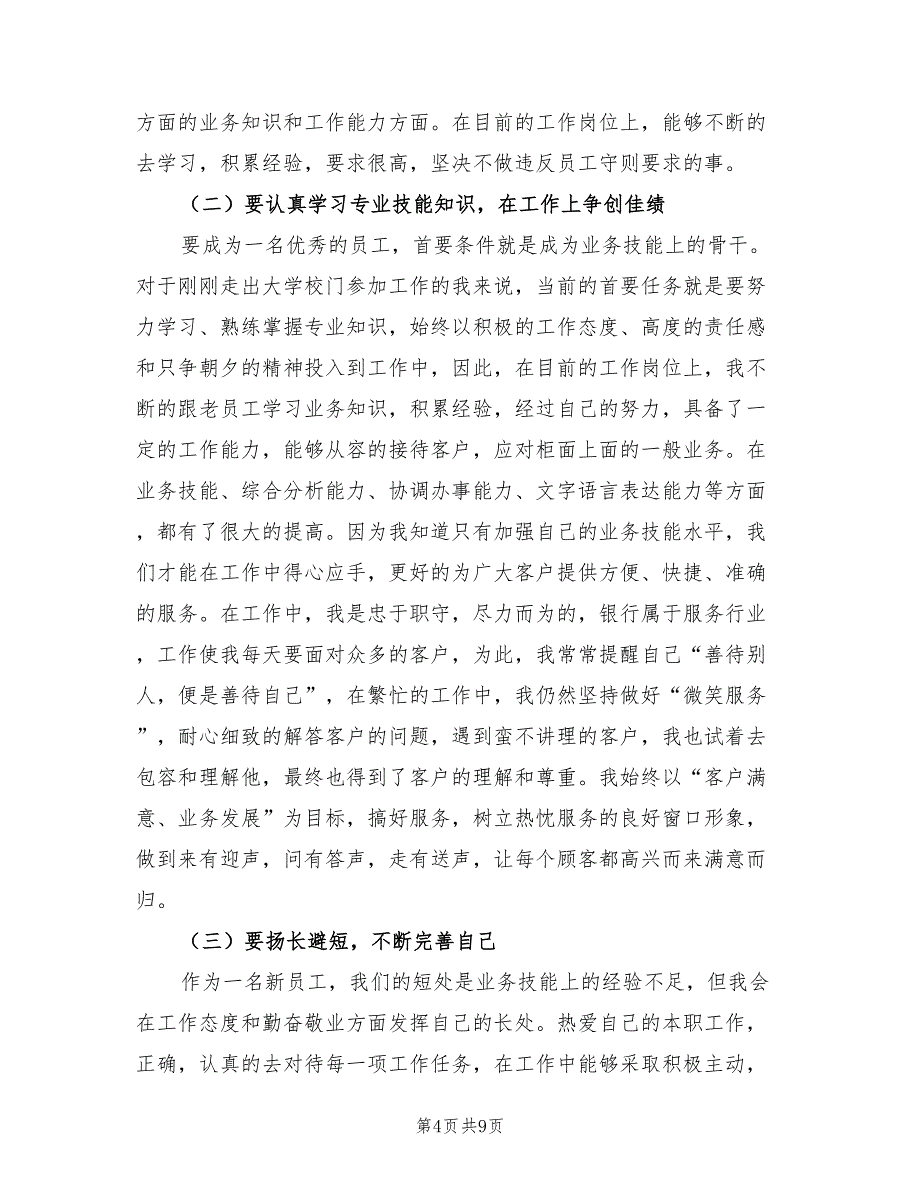 方面的业务知识和工作能力方面。在目前的工作岗位上，能够不断的
去学习，积累经验，要求很高，坚决不做违反员工守则要求的事。
（二）要认真学习专业技能知识，在工作上争创佳绩
要成为一名优秀的员工，首要条件就是成为业务技能上的骨干。
对于刚刚走出大学校门参加工作的我来说，当前的首要任务就是要努
力学习、熟练掌握专业知识，始终以积极的工作态度、高度的责任感
和只争朝夕的精神投入到工作中，因此，在目前的工作岗位上，我不
断的跟老员工学习业务知识，积累经验，经过自己的努力，具备了一
定的工作能力，能够从容的接待客户，应对柜面上面的一般业务。在
业务技能、综合分析能力、协调办事能力、文字语言表达能力等方面
，都有了很大的提高。因为我知道只有加强自己的业务技能水平，我
们才能在工作中得心应手，更好的为广大客户提供方便、快捷、准确
的服务。在工作中，我是忠于职守，尽力而为的，银行属于服务行业
，工作使我每天要面对众多的客户，为此，我常常提醒自己“善待别
人，便是善待自己”，在繁忙的工作中，我仍然坚持做好“微笑服务
”，耐心细致的解答客户的问题，遇到蛮不讲理的客户，我也试着去
包容和理解他，最终也得到了客户的理解和尊重。我始终以“客户满
意、业务发展”为目标，搞好服务，树立热忱服务的良好窗口形象，
做到来有迎声，问有答声，走有送声，让每个顾客都高兴而来满意而
归。
（三）要扬长避短，不断完善自己
作为一名新员工，我们的短处是业务技能上的经验不足，但我会
在工作态度和勤奋敬业方面发挥自己的长处。热爱自己的本职工作，
正确，认真的去对待每一项工作任务，在工作中能够采取积极主动，
第4页共9页